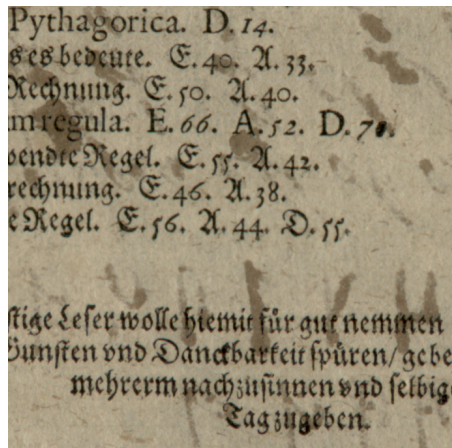 Pythagorica. D. 14.
s es bedeute. E. 40. A. 33.
Rechnung. E. 50. A. 40.
m regula. E. 66. A. 52. D. 70.
wendte Regel. E. 55. A. 42.
rechnung. E. 46. A. 38.
e Regel. E. 56. A. 44. D. 55.
stige Leser wolle hiemit für gut nemmen
Gunsten vnd Danckbarkeit spüren/ gebe
mehrerm nachzusinnen vnd selbig
Tag zugeben.